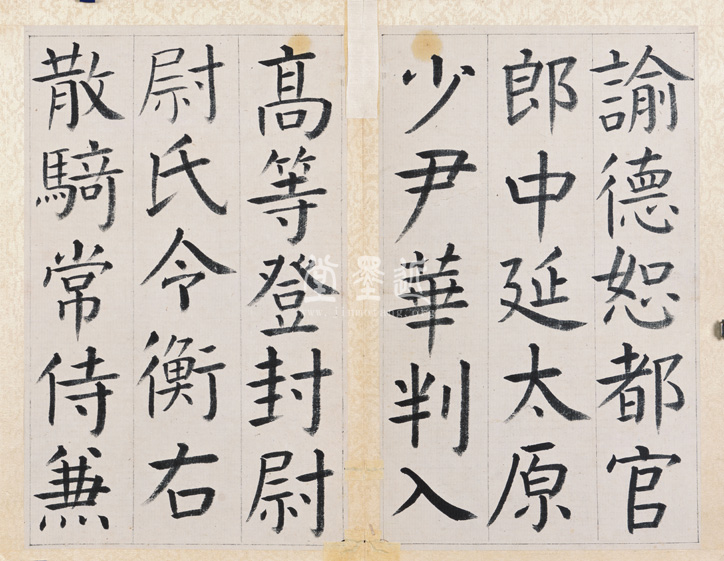 諭德恕都官
郎中延太原
少尹華判入
高等登封尉
尉氏令衡右
散騎常侍兼